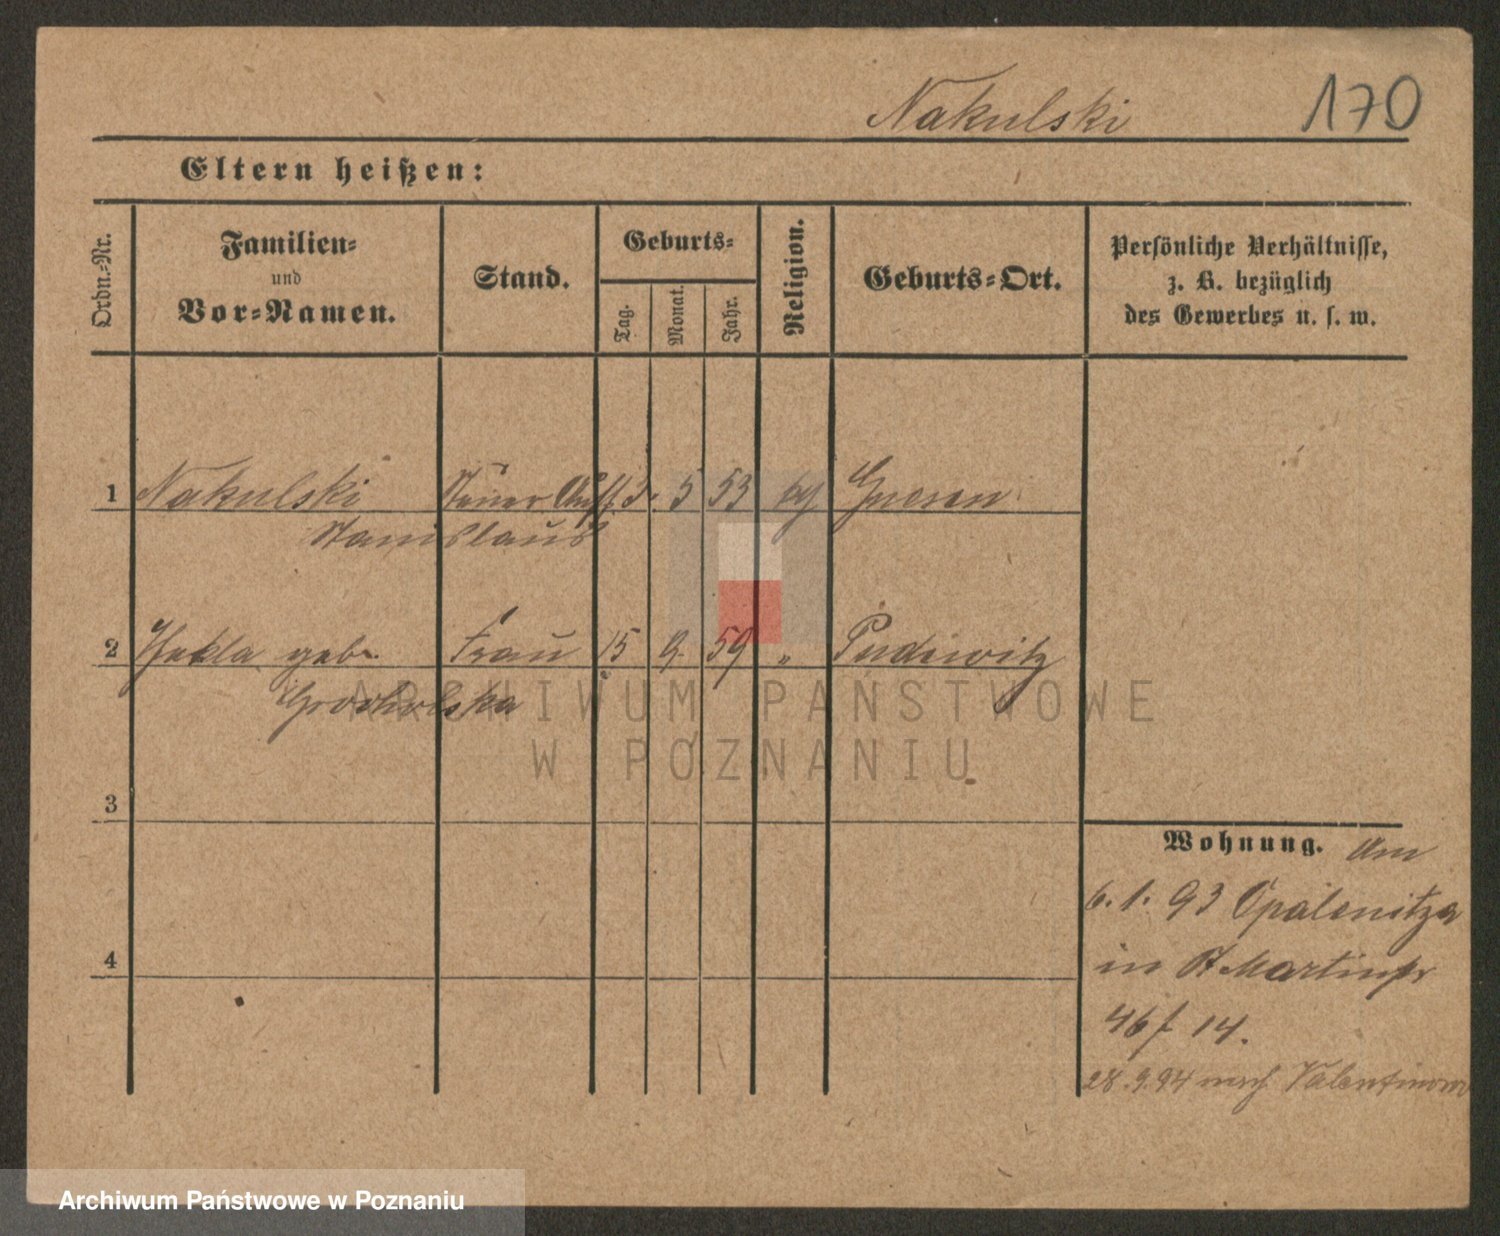 Nakulski 170
Eltern heißen:
Ordn.-Nr.
Familien-
und
Vor-Namen.
Stand.
Geburts-
Tag.
Monat.
Jahr.
Religion.
Geburts-Ort.
Persönliche Verhältnisse,
z. B. bezüglich
des Gewerbes u. s. w.
1 Nakulski Steuer Auff. 3. 5 53 kg Gnesen
Stanislaus
2 Thekla geb. Frau 15 9. 59 " Pudewitz
Grocholska
3
4
Wohnung. Am
6. 1. 93 Opalenitza
in St Martinstr
46 f 14.
28. 9. 94 nach Valentinowo
ARCHIWUM PAŃSTWOWE
W POZNANIU
Archiwum Państwowe w Poznaniu